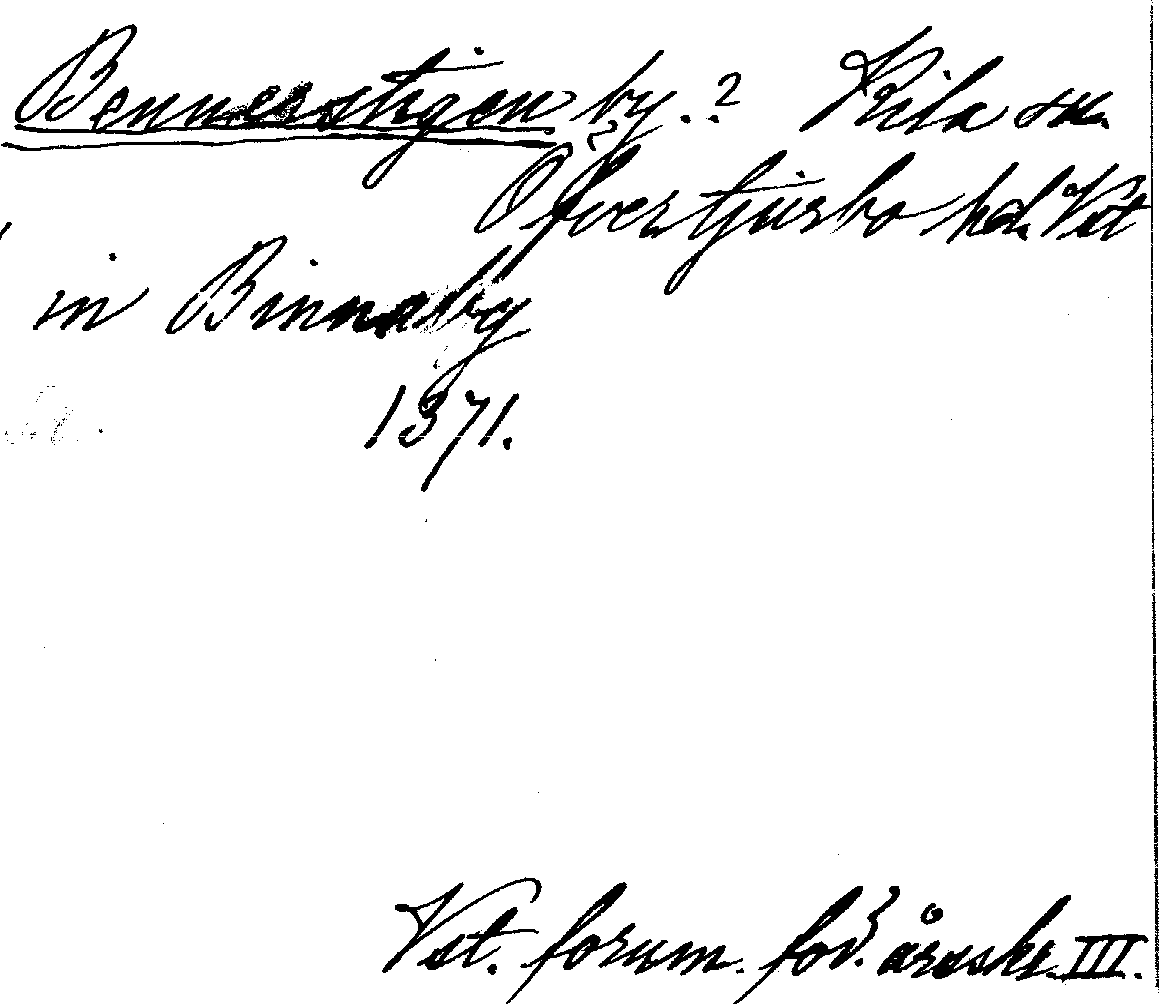 Bennerstigen by.? Kila sn.
Öfvertjurbo hd. Vst
in Binnaby
1371.
Vst. fornm. för. årsskr. III.